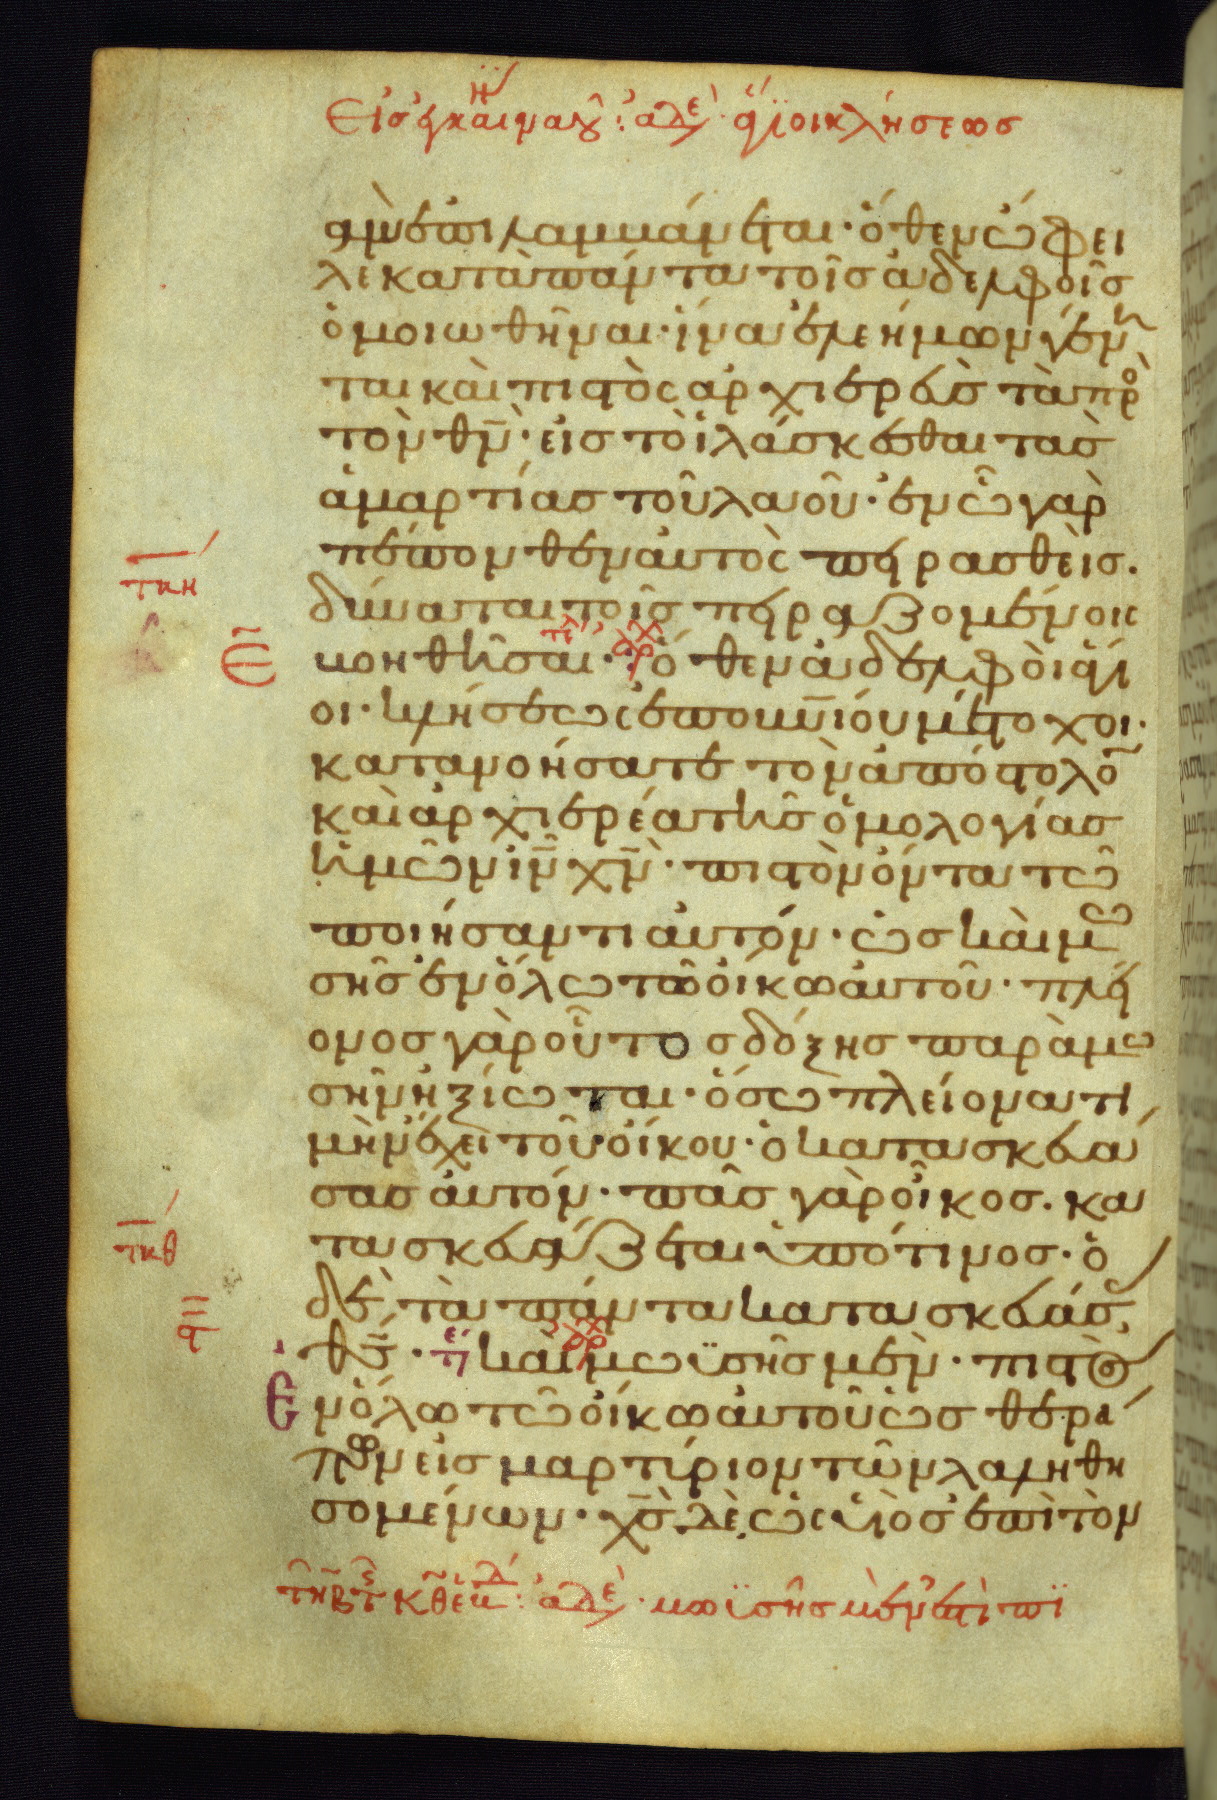 ἀμ ἐπιλαμβάνεται· ὅθεν ὤφει
λε κατὰ πάντα τοῖς ἀδελφοῖς
ὁμοιωθῆναι· ἵνα ἐλεήμων γένη
ται καὶ πιστὸς ἀρχιερεὺς τὰ πρὸ
τὸν θν̅· εἰς τὸ ἱλάσκεσθαι τὰς
ἁμαρτίας τοῦ λαοῦ· ἐν ὧ γὰρ
πέπονθεν αὐτὸς πειρασθεὶς.
τκη
δύναται τοῖς πειραζομένοις
βοηθῆσαι· ὅθεν ἀδελφοὶ ἅγι
οι· κλήσεως ἐπουνίου μέτοχοι·
κατανοήσατε τὸν ἀπόστολο̅
καὶ ἀρχιερέα τῆς ὁμολογίας
ἡμῶν ιν̅ χν̅· πιστὸν ὄντα τῶ
ποιήσαντι αὐτόν· ὡς καὶ μω
σῆς ἐν ὅλω τῶ οἴκω αὐτοῦ· πλεί
ονος γὰρ οὗτος δόξης παρὰ μω
σῆν ἠξίωται· ὅσω πλείονα τι
μὴν ἔχει τοῦ οἴκου· ὁ κατασκευά
σας αὐτόν· πᾶς γὰρ οἶκος. κα
τκθ
τασκευάζεται ὑπό τινος· ὁ
δὲ, τὰ πάντα κατασκευάσ
θς̅· καὶ μωϋσῆς μὲν· πιστὸς
Ἐν ὅλω τῶ οἴκω αὐτοῦ ὡς θερά
πων εἰς μαρτίριον τῶν λαληθη
σομένων· χς̅ δὲ ὡς υἱὸς ἐπὶ τὸν